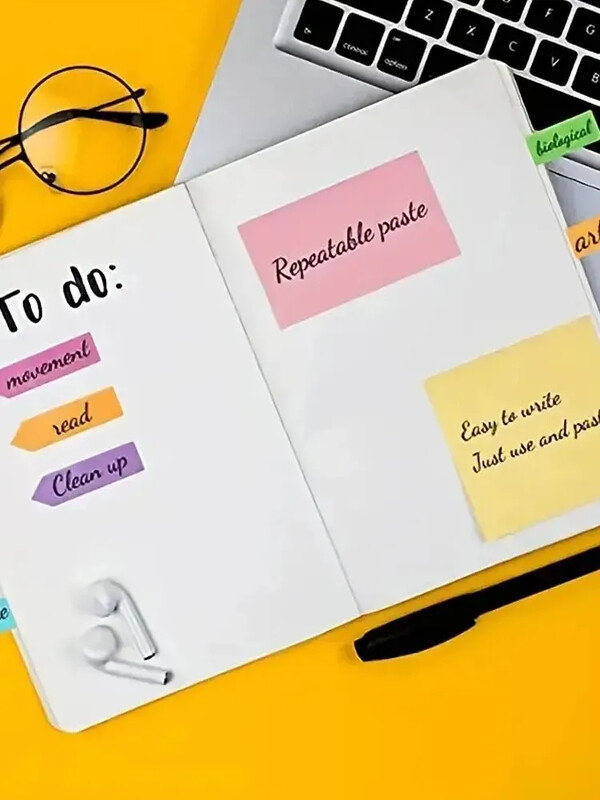 To do:
movement
read
Clean up
Repeatable paste
Easy to write
Just use and past
biological
art
Z
X
C
V
F
G
control
option